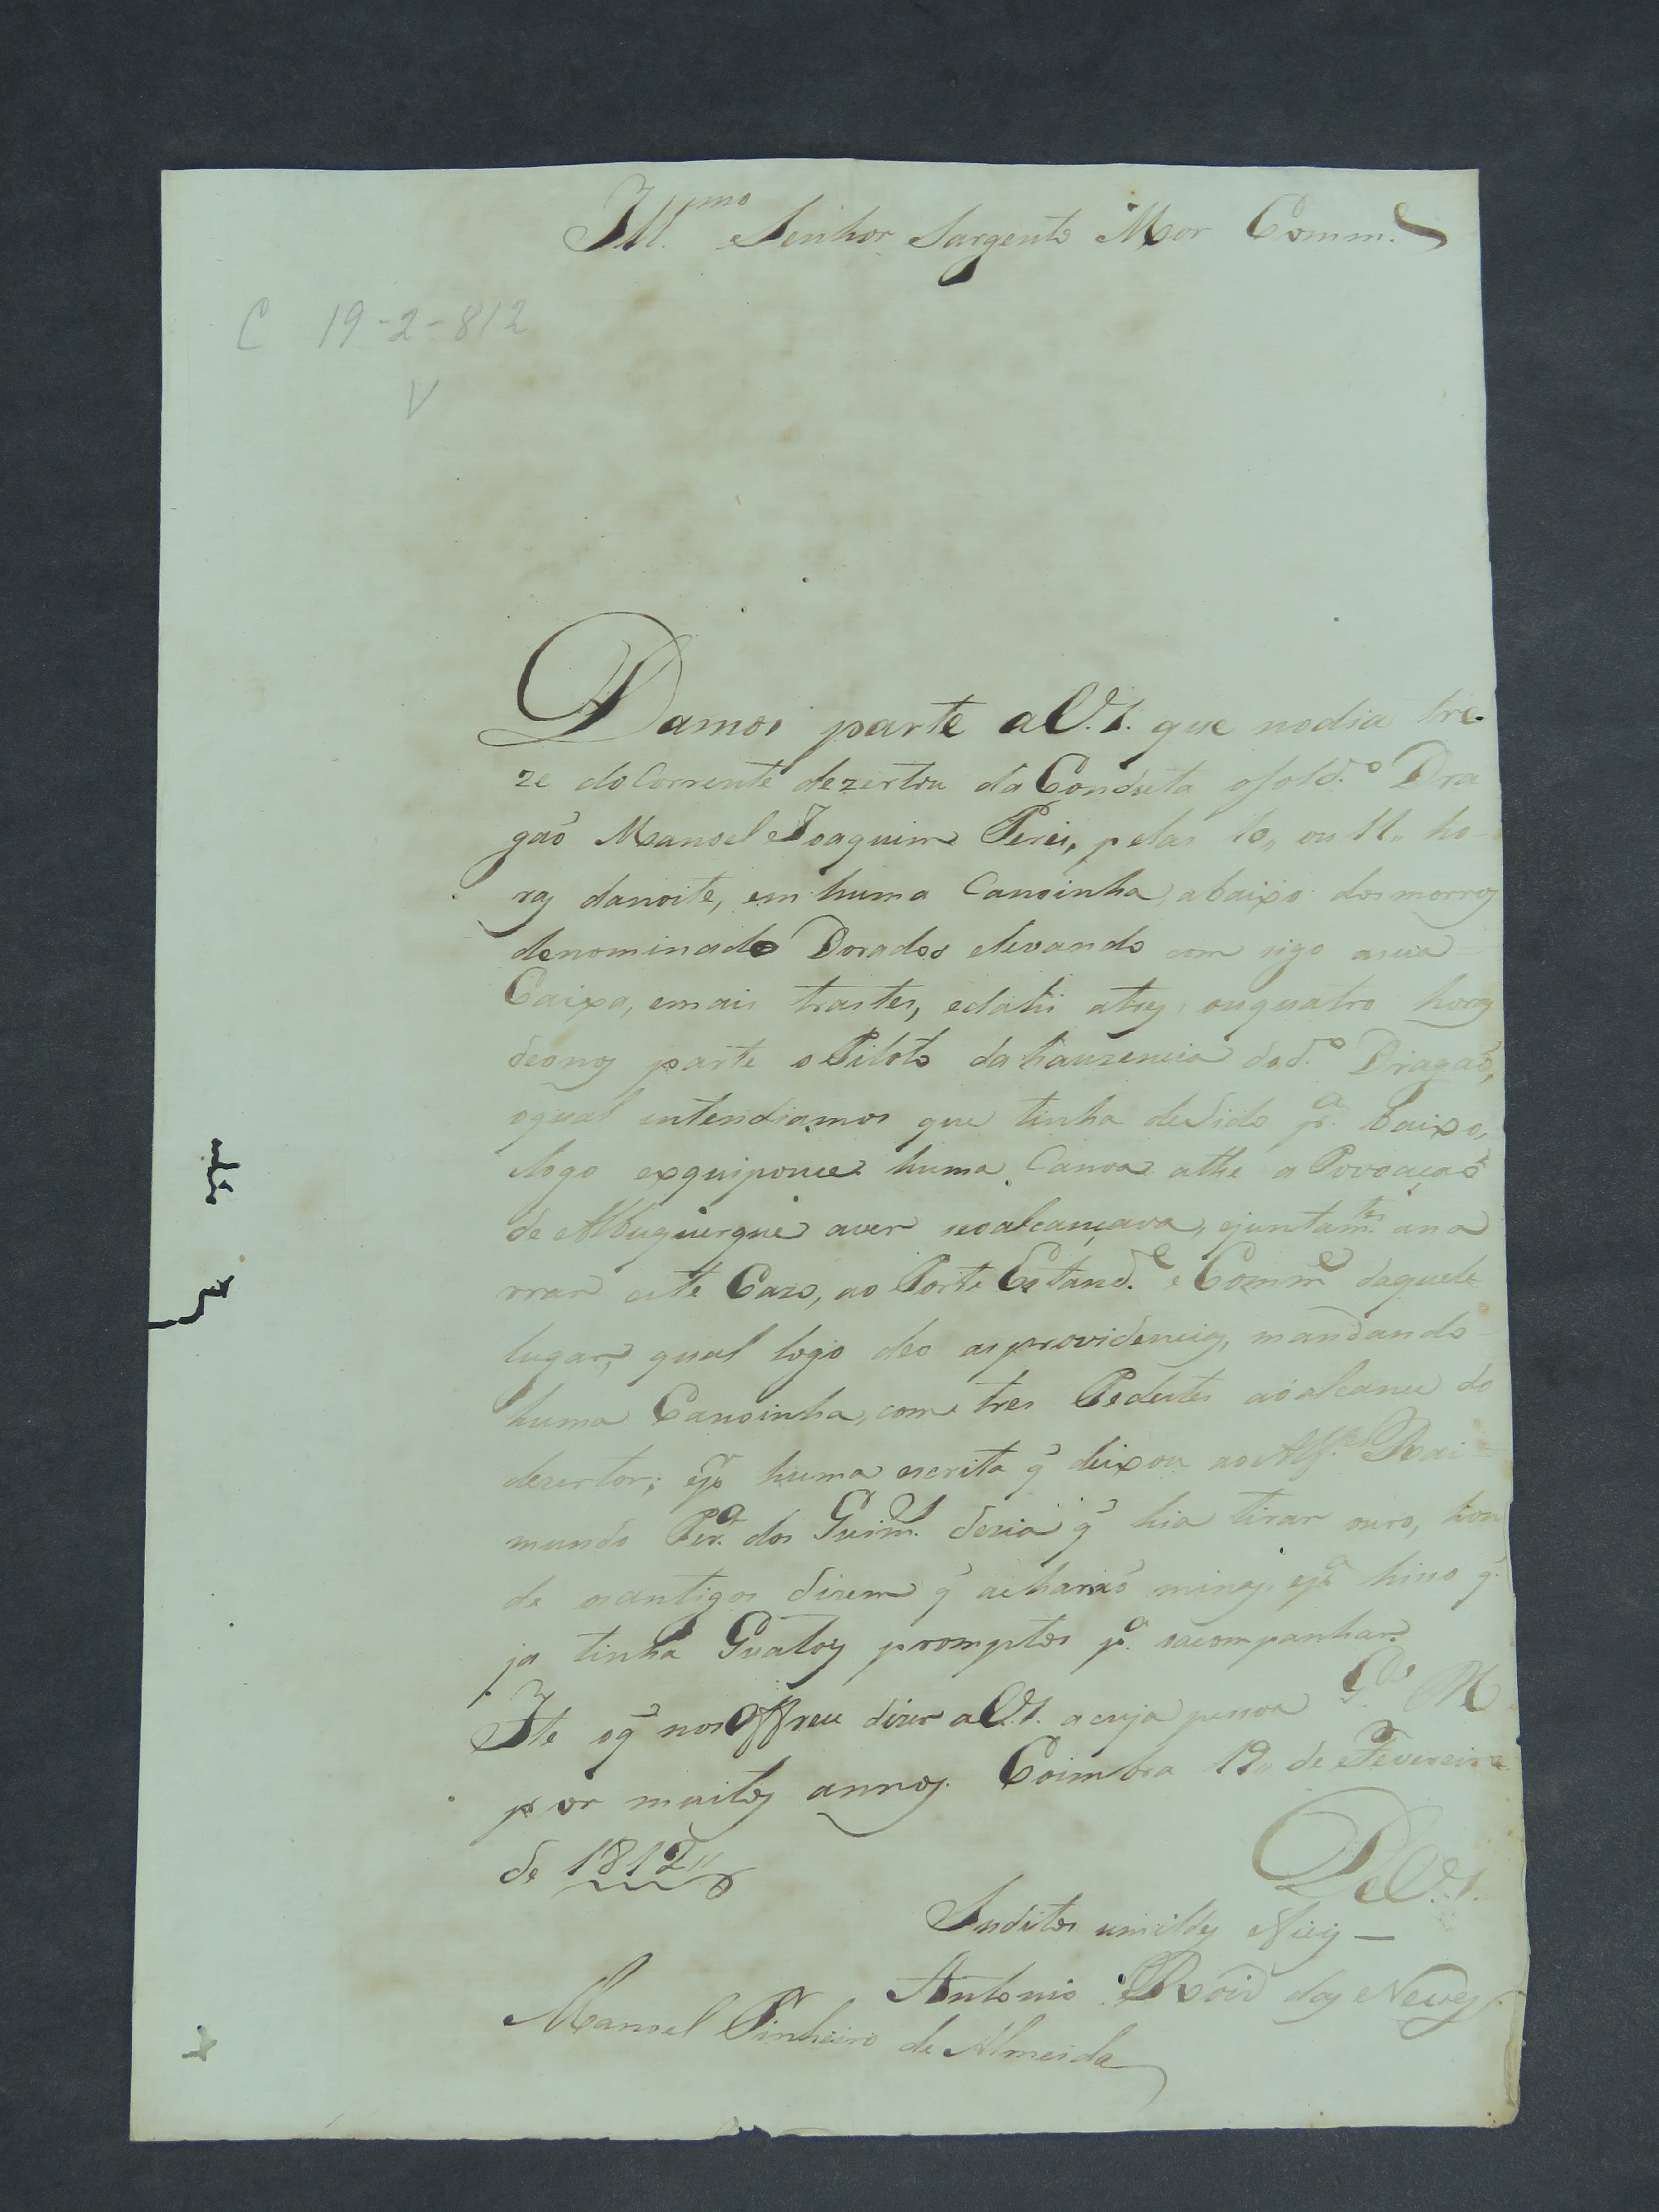 Ill.mo Senhor Sargento Mor Comm.e
C 19-2-812
V
Damos parte aV.S. que nodia tre-
ze do Corrente dezertou da Conduta osold.o Dra
gaõ Manoel Joaquim Peres, pelas 10,, ou 11,, ho-
ras danoite, em huma Canoinha, abaixo dos morros
denominado Dorados levando com sigo asua
Caixa, emais trastes, edahi atres ouquatro horas
deonos parte o Piloto da hauzencia dod.o Dragaõ,
oqual intendiamos que tinha desido p.a baixo,
logo exquiponce huma Canoa athe a Povoaçaõ
de Albuquerque aver seoalcançava, ejuntam.te ana
rrar este Cazo, ao Porte Estand.e e Comm.e daquele
lugar, qual logo deo asprovidencias, mandando
huma Canoinha, com tres Pedestes aoalcance do
dezertor; epo huma escrita q̃ deixou ao Alf.es Rai-
mundo Per.a dos Guim.s dezia q̃ hia tirar ouro, hon
de osantigos dizem q̃ acharaõ minas, epa hisso q̃
ja tinha Guatos promptos p.a oacompanhar.
Iste oq̃ nos Offrece dizer aV.S. acuja pessoa G.de
por muitos annos. Coimbra 19,, de Fevereiro
de 1812,,
De V.S.
Suditos umildes
Antonio Roiz das Neves
Manoel Pinheiro de Almeida